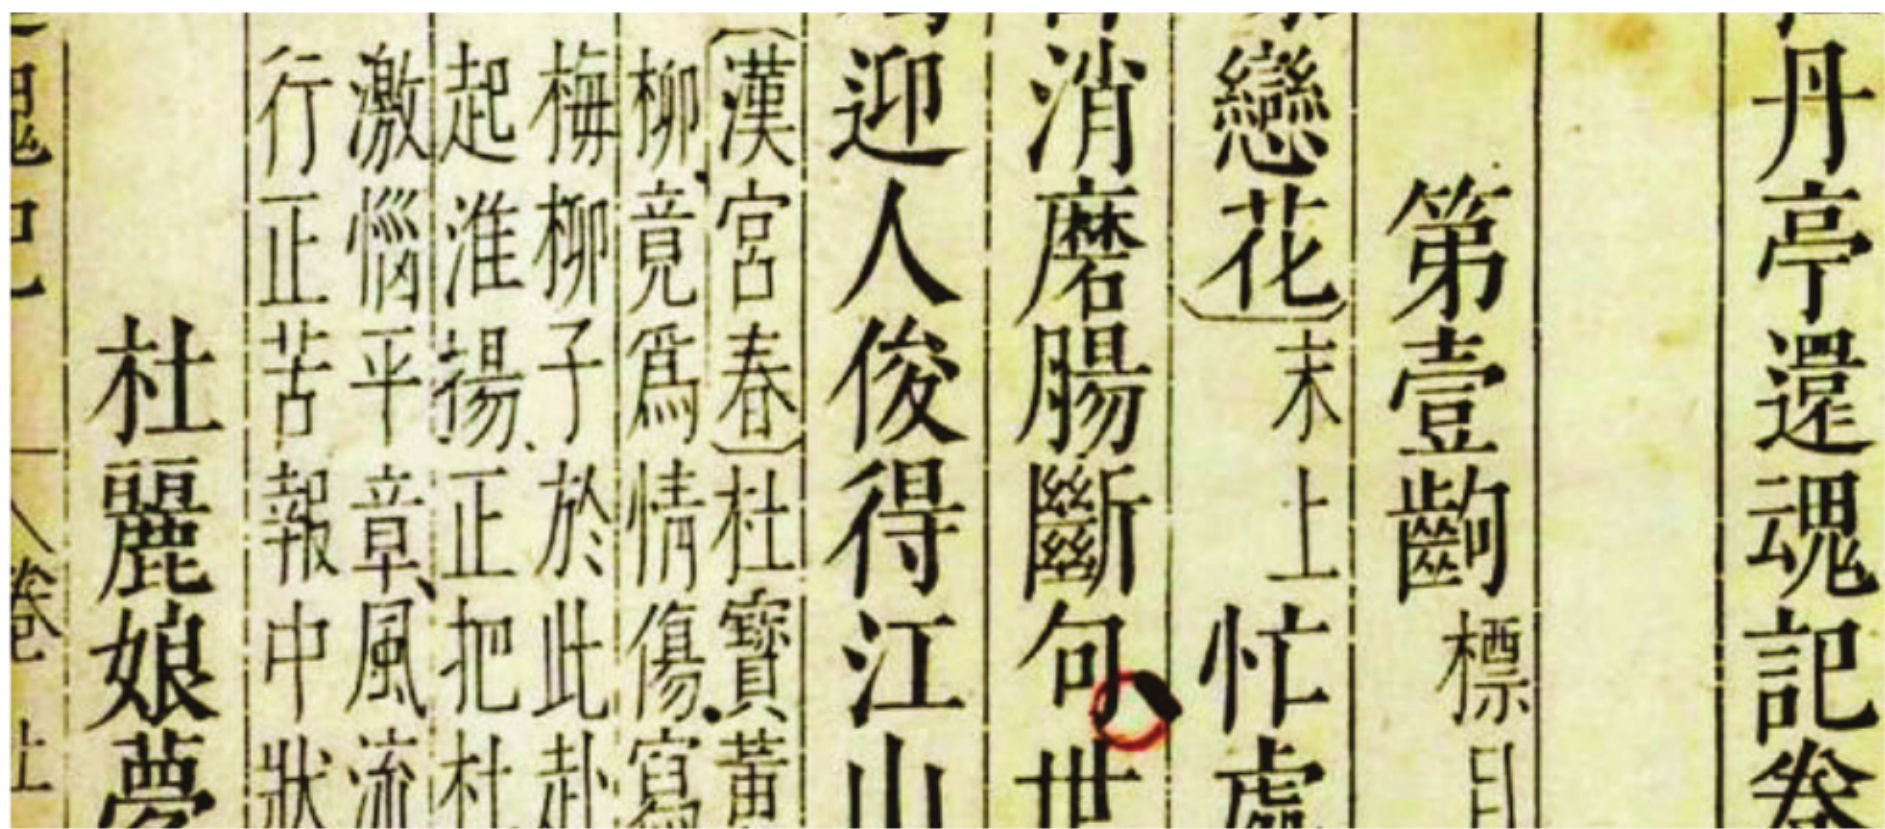 丹亭還魂記卷
第壹齣標目
戀花末上忙處
消磨腸斷句世
迎人俊得江山
漢宮春杜寶黃
柳竟爲情傷寫
梅柳子於此赴
起淮揚正把杜
激惱平章風流
行正苦報中狀
杜麗娘夢
魂記
卷上